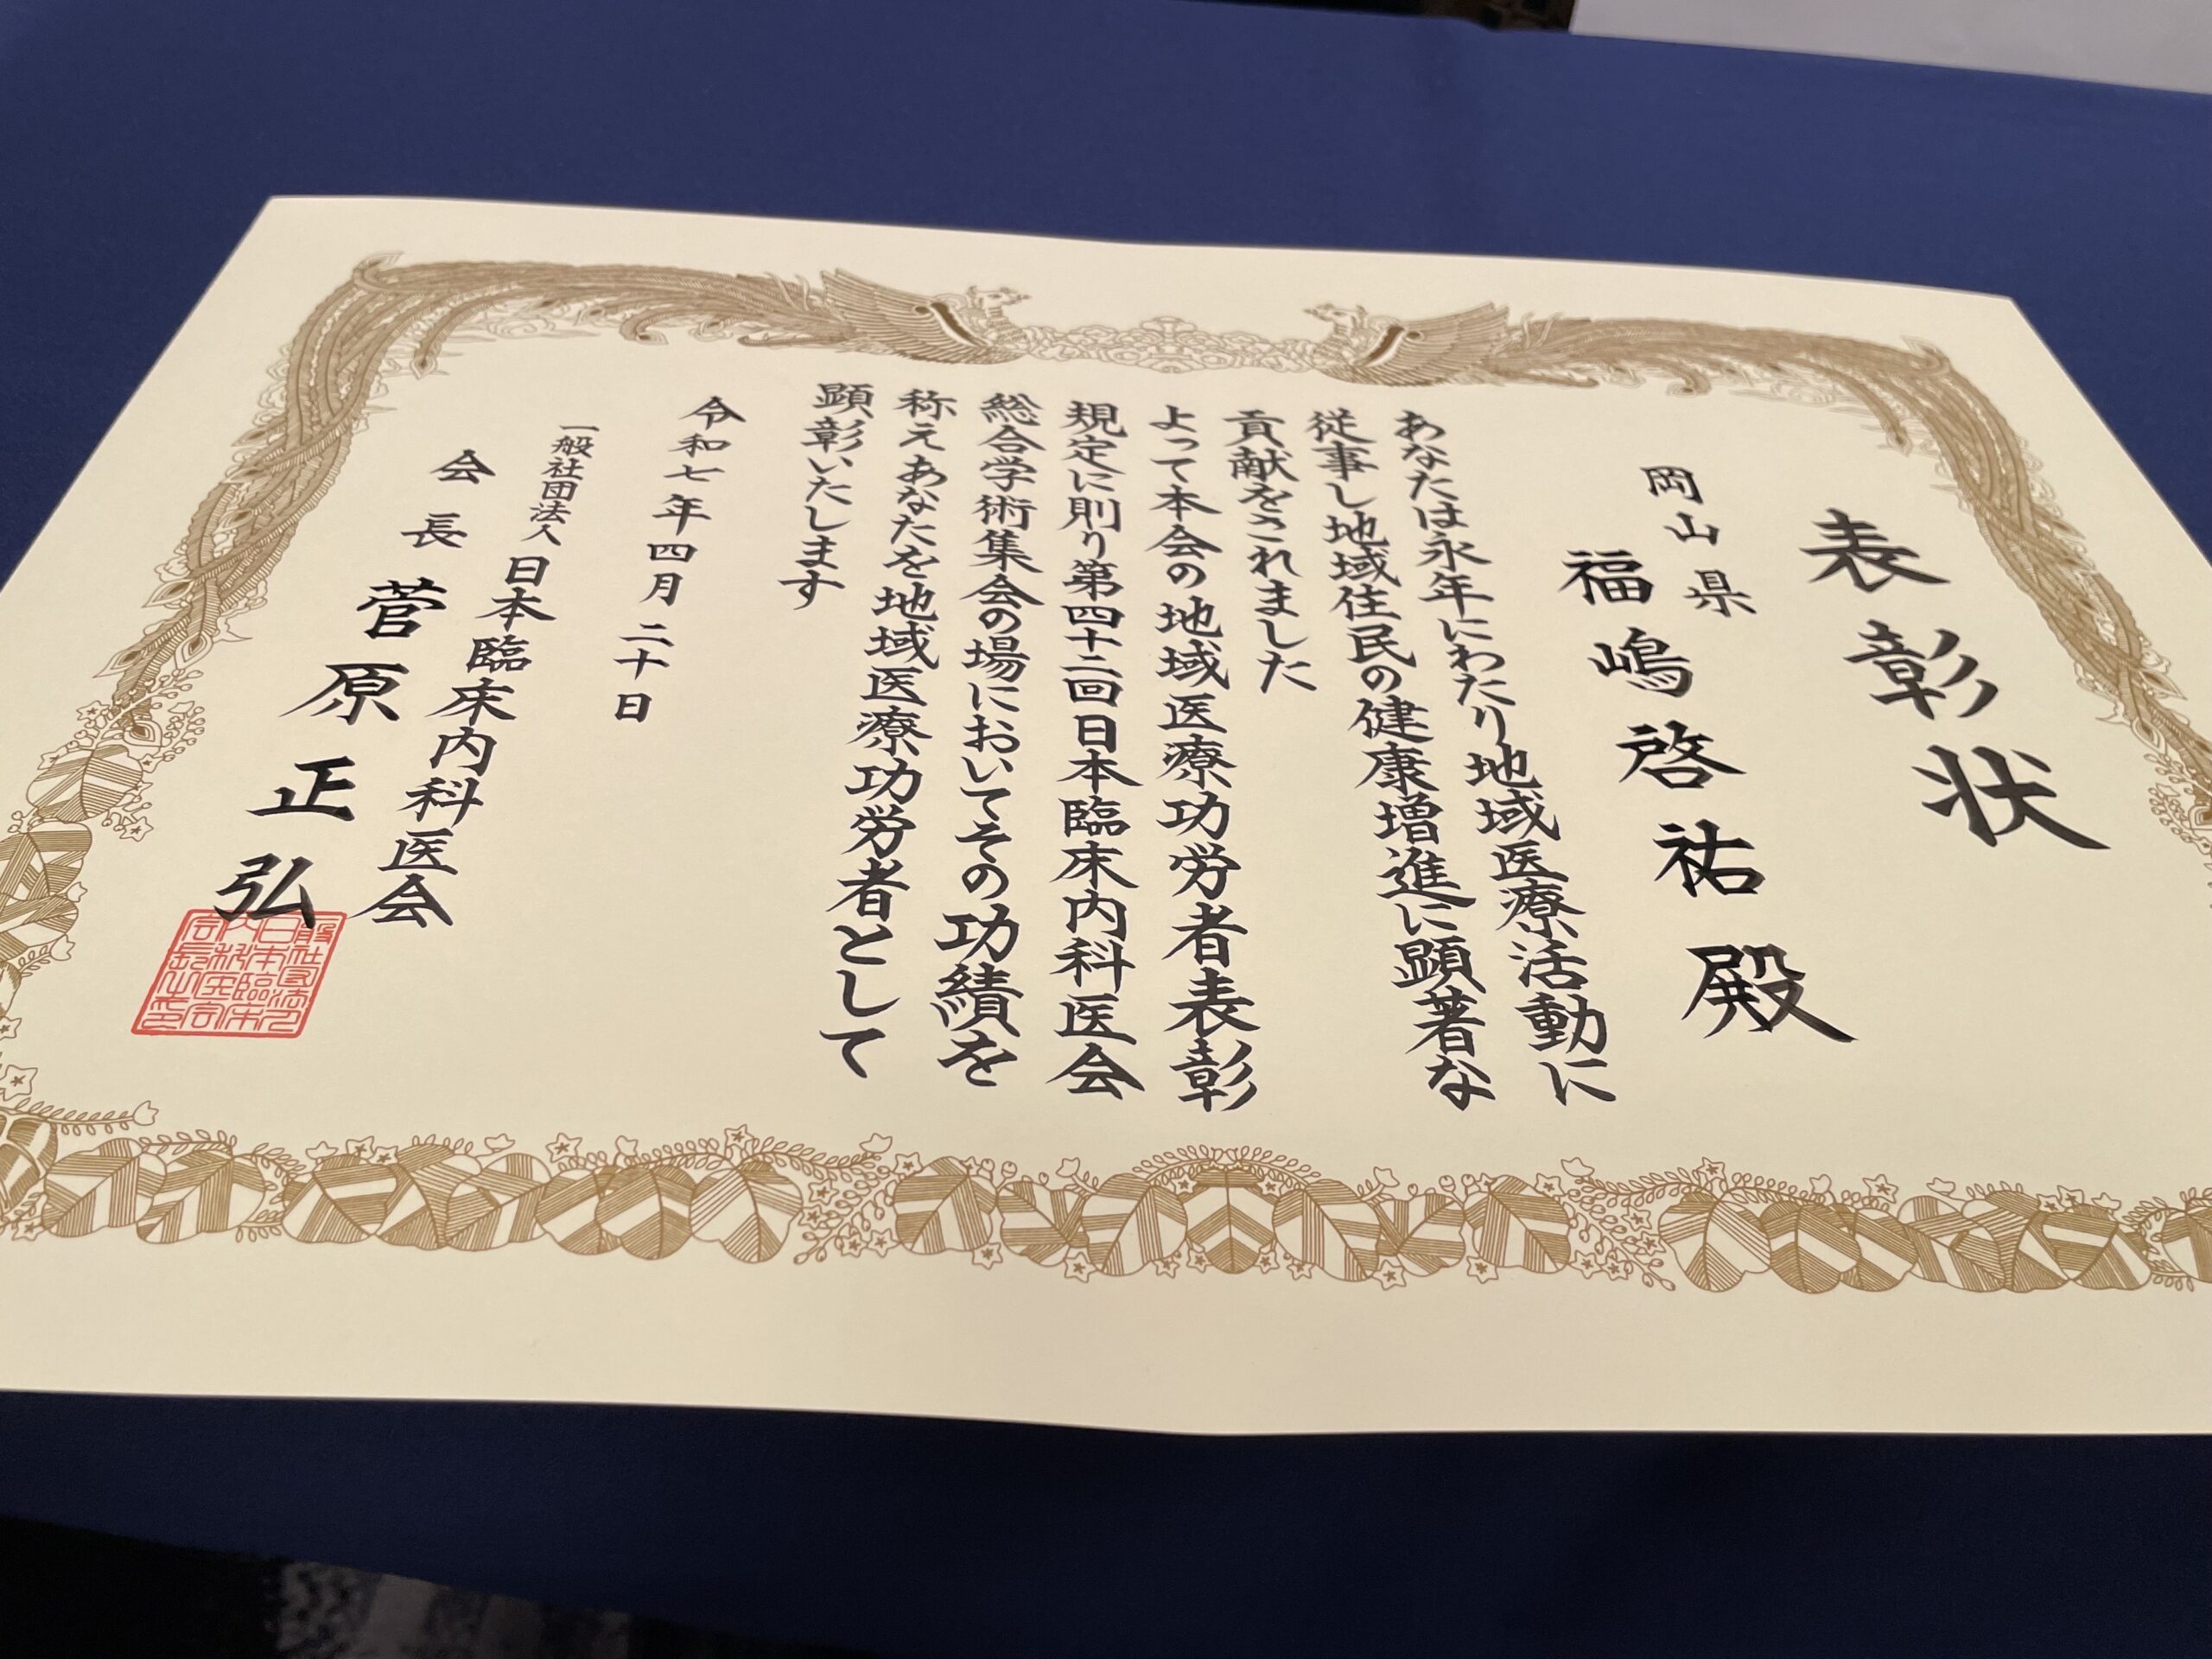 表彰状
岡山県
福嶋啓祐殿
あなたは永年にわたり地域医療活動に
従事し地域住民の健康増進に顕著な
貢献をされました
よって本会の地域医療功労者表彰
規定に則り第四十二回日本臨床内科医会
総合学術集会の場においてその功績を
称えあなたを地域医療功労者として
顕彰いたします
令和七年四月二十日
一般社団法人日本臨床内科医会
会長菅原正弘